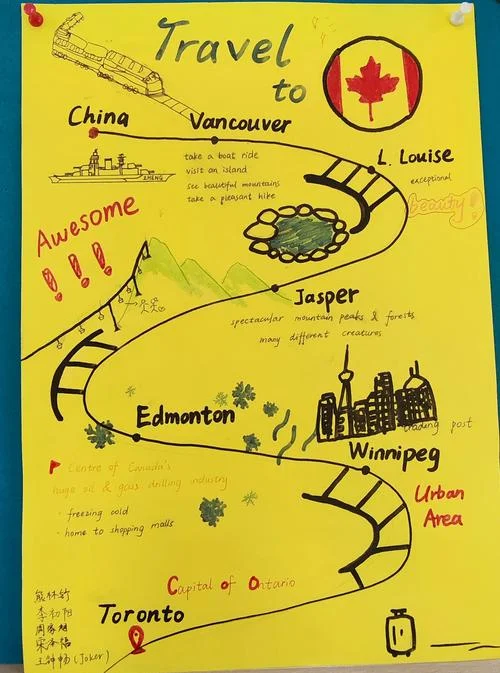 Travel
to
China
Vancouver
take a boat ride
visit an island
see beautiful mountains
take a pleasant hike
L. Louise
exceptional
beauty!
ZHENG
Awesome
!!!
Jasper
spectacular mountain peaks & forests
many different creatures
Edmonton
Centre of Canada's
huge oil & gas drilling industry
· freezing cold
· home to shopping malls
trading post
Winnipeg
Urban
Area
Capital of Ontario
Toronto
李初阳
(Joker)